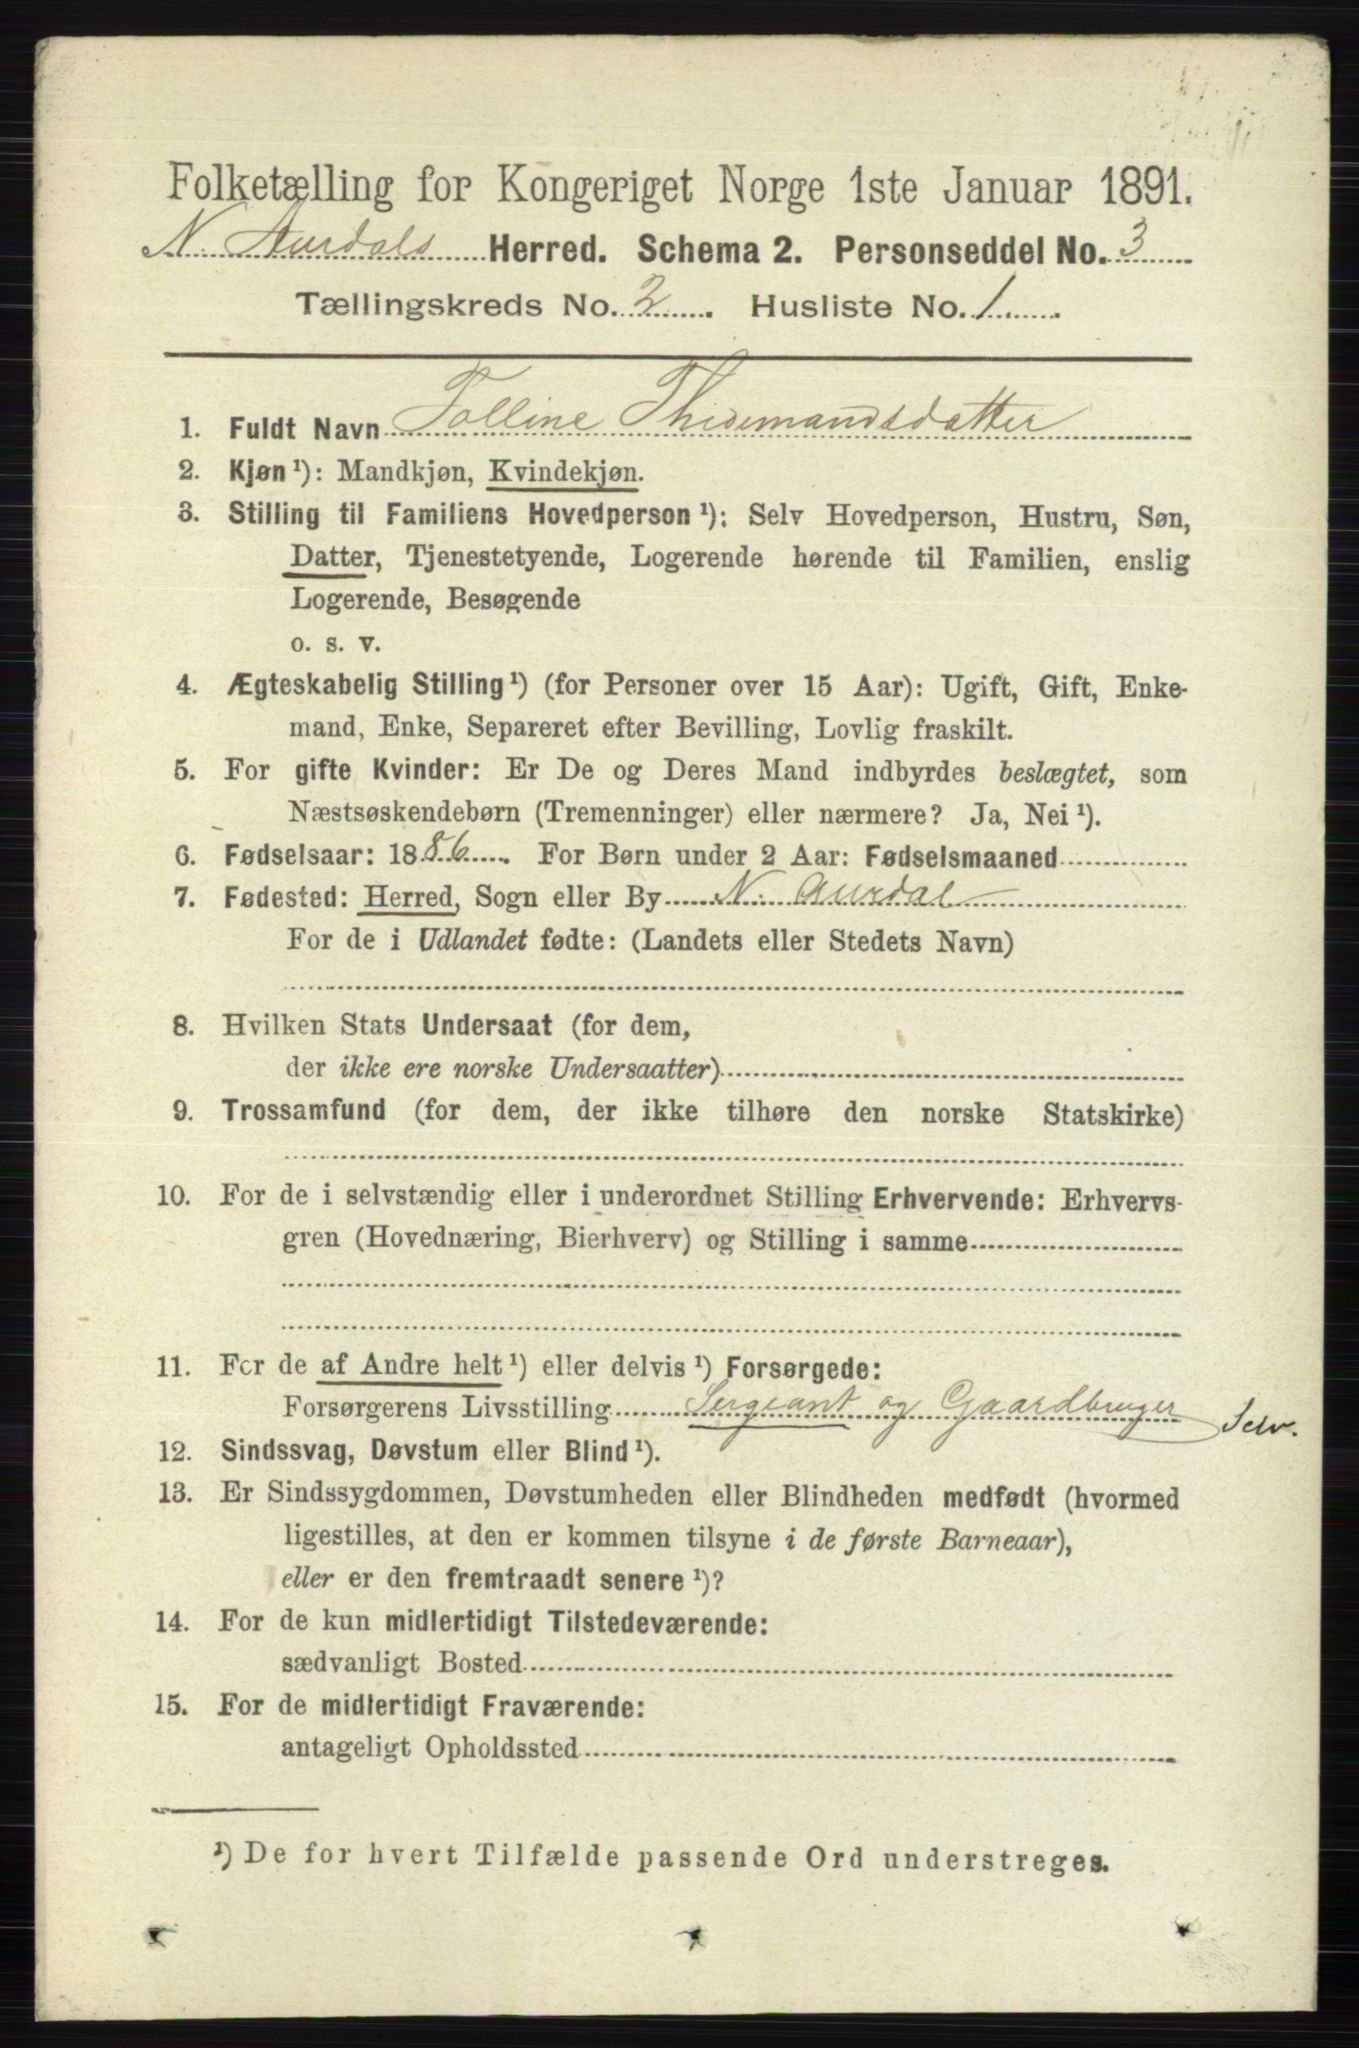 Folketælling for Kongeriget Norge 1ste Januar 1891.
N. Aurdals Herred. Schema 2. Personseddel No. 3
Tællingskreds No. 2. Husliste No. 1.
1. Fuldt Navn Tolline Thidemandsdatter
2. Kjøn ¹): Mandkjøn, Kvindekjøn.
3. Stilling til Familiens Hovedperson ¹): Selv Hovedperson, Hustru, Søn,
Datter, Tjenestetyende, Logerende hørende til Familien, enslig
Logerende, Besøgende
o. s. v.
4. Ægteskabelig Stilling ¹) (for Personer over 15 Aar): Ugift, Gift, Enke-
mand, Enke, Separeret efter Bevilling, Lovlig fraskilt.
5. For gifte Kvinder: Er De og Deres Mand indbyrdes beslægtet, som
Næstsøskendebørn (Tremenninger) eller nærmere? Ja, Nei ¹).
6. Fødselsaar: 1886. For Børn under 2 Aar: Fødselsmaaned
7. Fødested: Herred, Sogn eller By N. Aurdal
For de i Udlandet fødte: (Landets eller Stedets Navn)
8. Hvilken Stats Undersaat (for dem,
der ikke ere norske Undersaatter)
9. Trossamfund (for dem, der ikke tilhøre den norske Statskirke)
10. For de i selvstændig eller i underordnet Stilling Erhvervende: Erhvervs-
gren (Hovednæring, Bierhverv) og Stilling i samme
11. For de af Andre helt ¹) eller delvis ¹) Forsørgede:
Forsørgerens Livsstilling Sergeant og Gaardbruger Selv.
12. Sindssvag, Døvstum eller Blind ¹).
13. Er Sindssygdommen, Døvstumheden eller Blindheden medfødt (hvormed
ligestilles, at den er kommen tilsyne i de første Barneaar),
eller er den fremtraadt senere ¹)?
14. For de kun midlertidigt Tilstedeværende:
sædvanligt Bosted
15. For de midlertidigt Fraværende:
antageligt Opholdssted
¹) De for hvert Tilfælde passende Ord understreges.